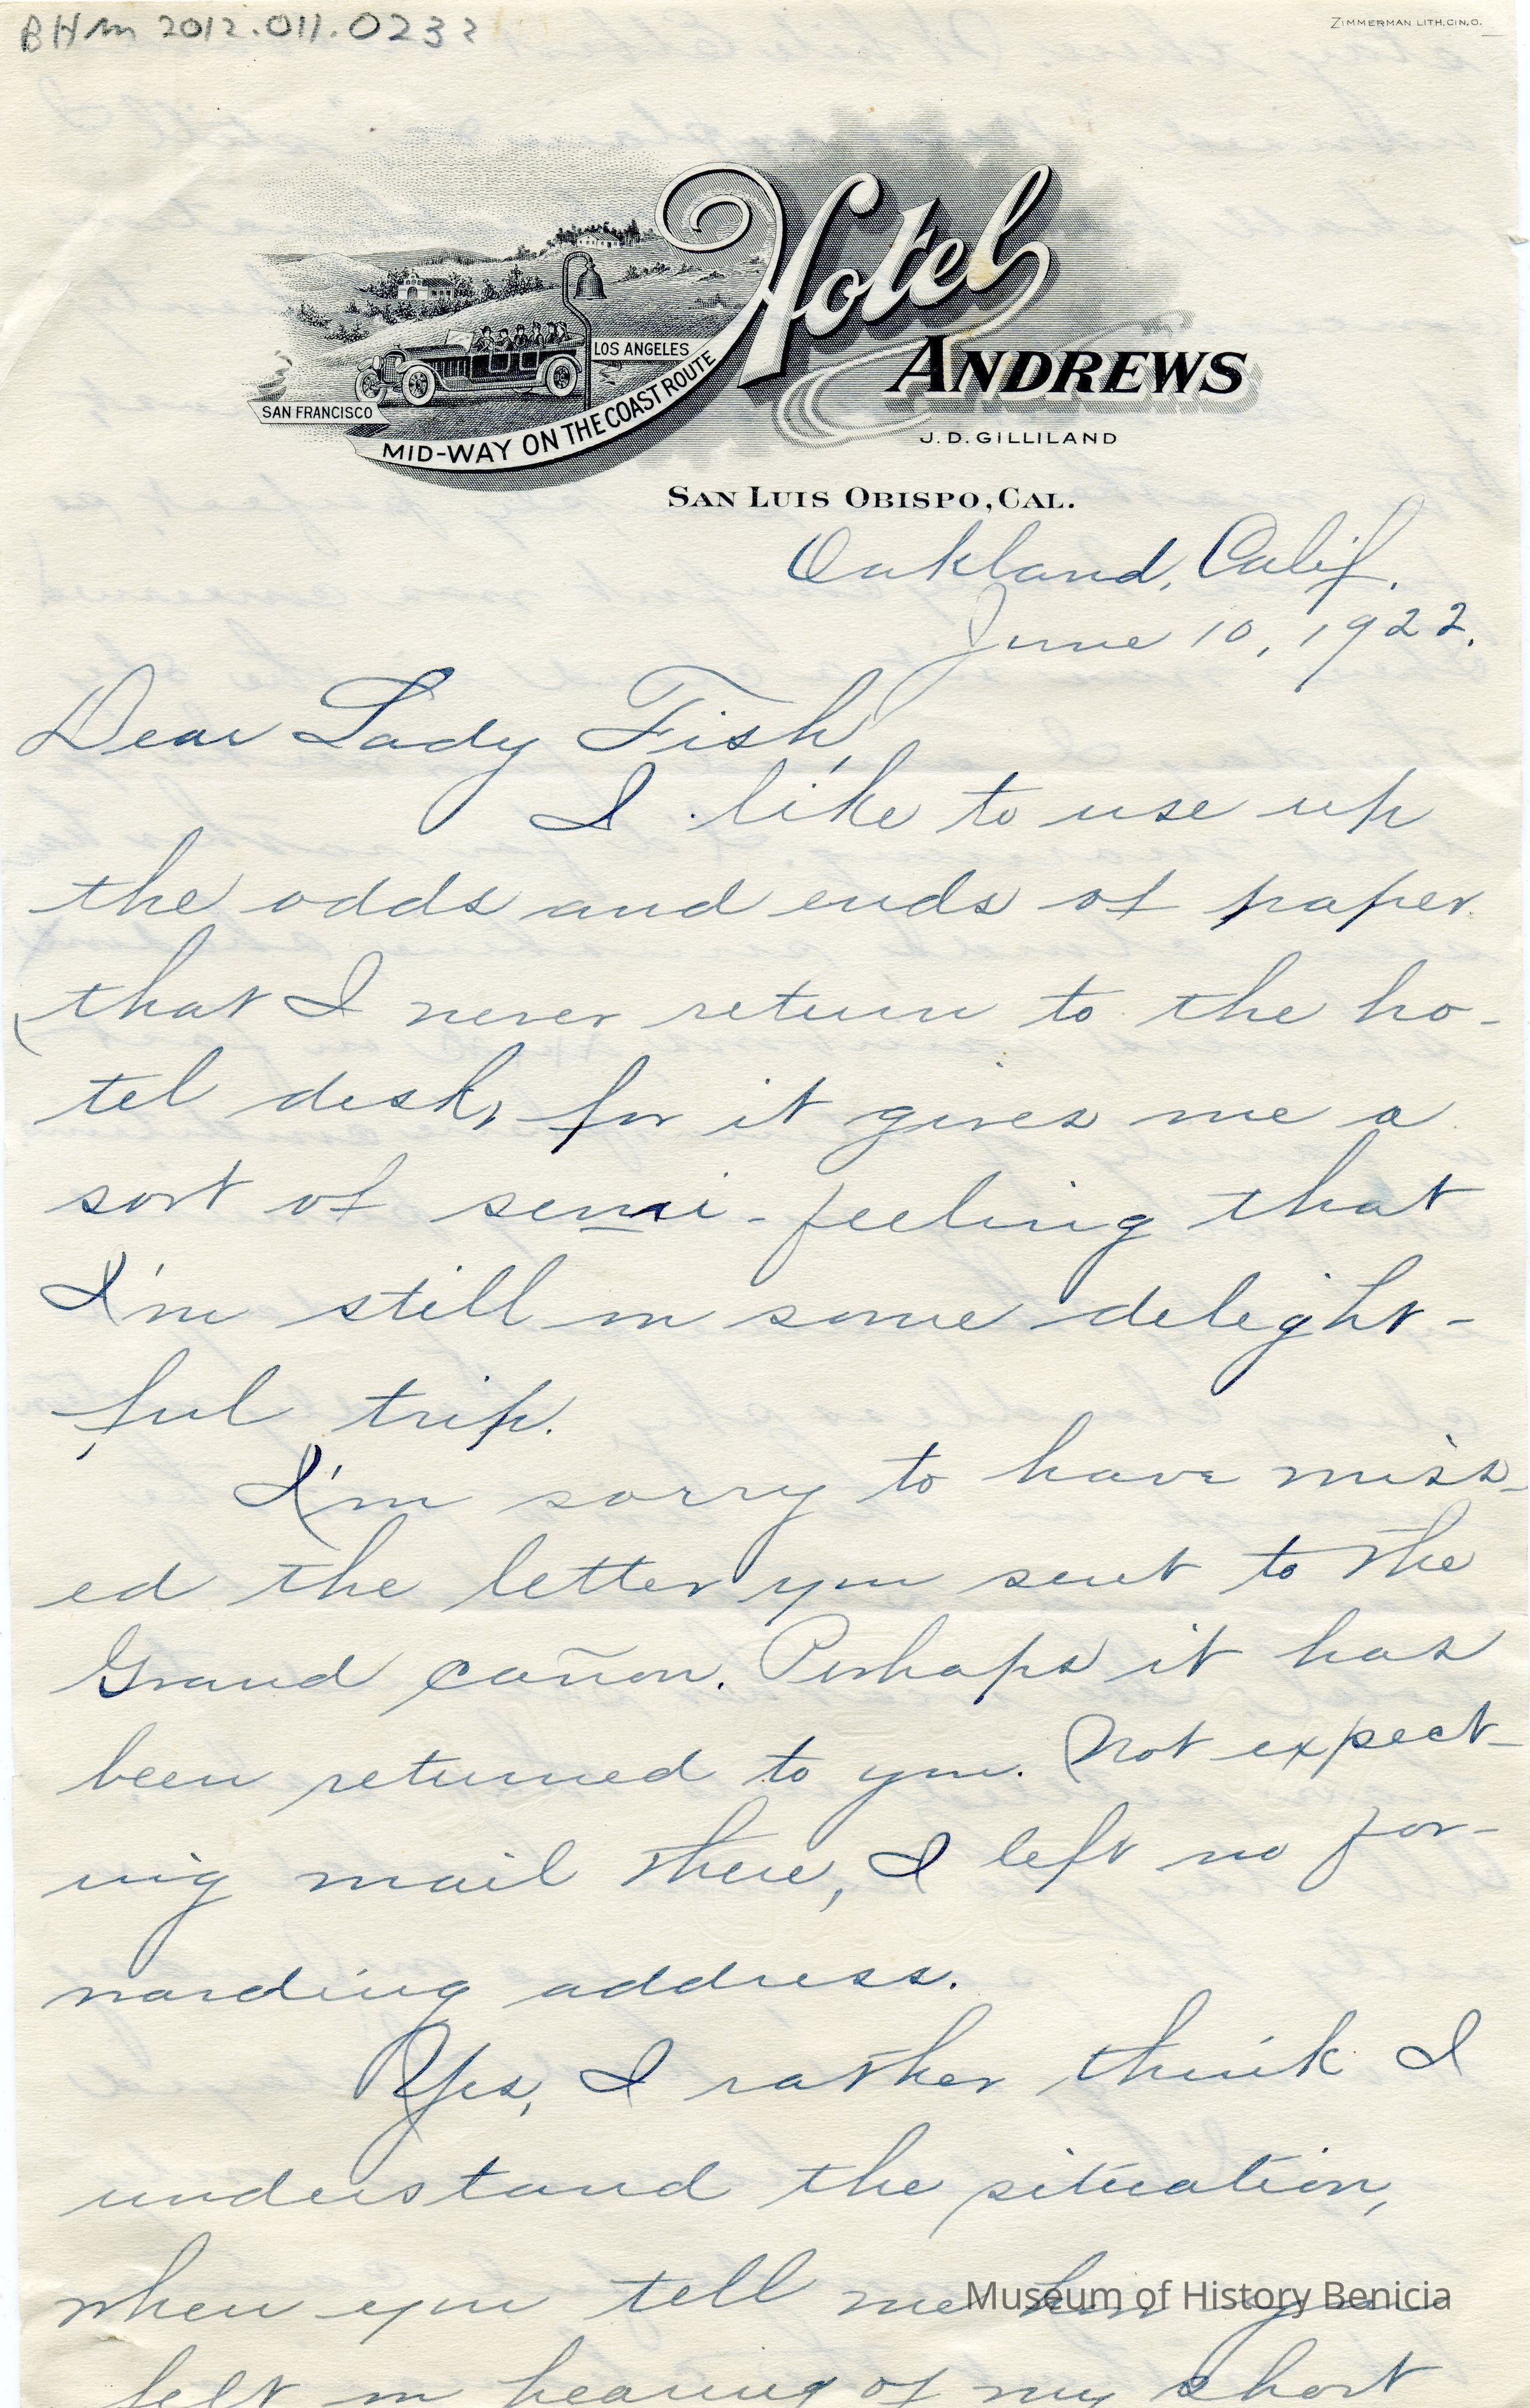 BHM 2012.011.0232
ZIMMERMAN LITH, CIN, O.
Hotel
ANDREWS
LOS ANGELES
SAN FRANCISCO
MID-WAY ON THE COAST ROUTE
J. D. GILLILAND
SAN LUIS OBISPO, CAL.
Oakland, Calif.
June 10, 1922.
Dear Lady Fish,
I like to use up
the odds and ends of paper
that I never return to the ho-
tel desk, for it gives me a
sort of semi-feeling that
I'm still on some delight-
ful trip.
I'm sorry to have miss-
ed the letter you sent to the
Grand cañon. Perhaps it has
been returned to you. Not expect-
ing mail there, I left no for-
warding address.
Yes, I rather think I
understand the situation,
when you tell me how you
felt on hearing of my short
Museum of History Benicia